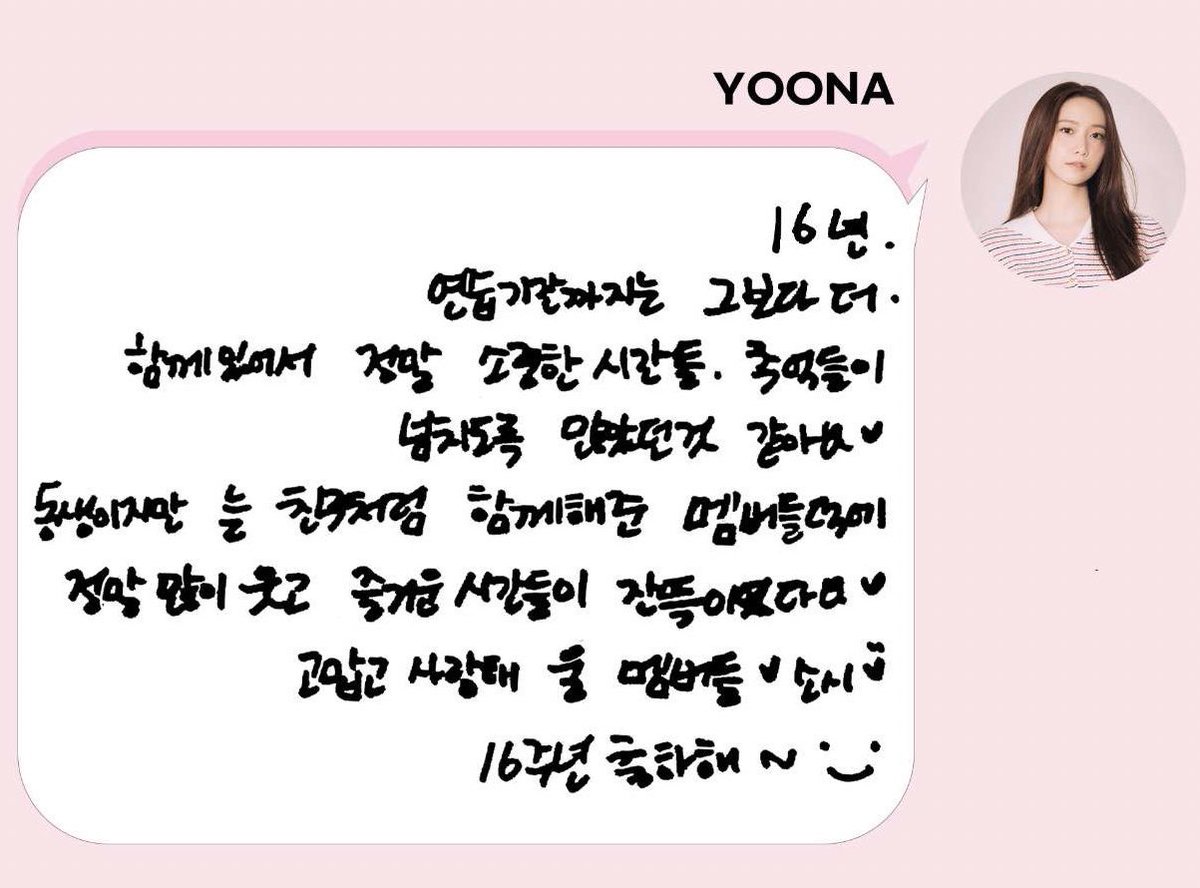 YOONA
16년.
연습기간까지는 그보다 더.
함께 있어서 정말 소중한 시간들. 추억들이
넘치도록 많았던것 같아요♥
동생이지만 늘 친구처럼 함께해준 멤버들덕에
정말 많이 웃고 즐거운 시간들이 잔뜩이였다요♥
고맙고 사랑해 울 멤버들♥소시♥
16주년 축하해~